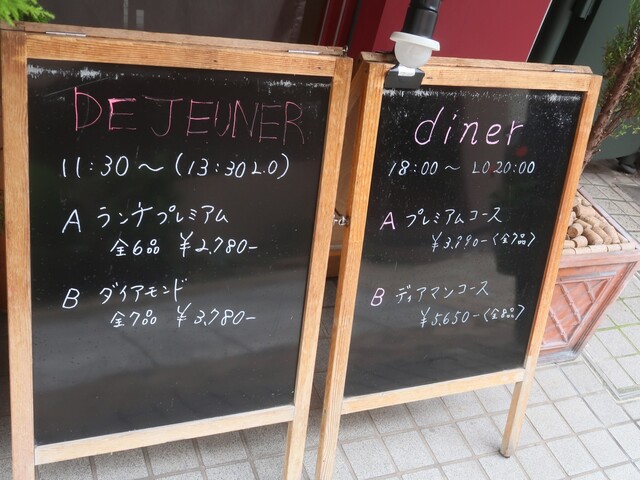 DEJEUNER
11:30～(13:30L.O)
A ランチプレミアム
全6品 ¥2,780-
B ダイアモンド
全7品 ¥3,780-
diner
18:00～ LO20:00
A プレミアムコース
¥3,790-(全7品)
B ディアマンコース
¥5,650-(全8品)